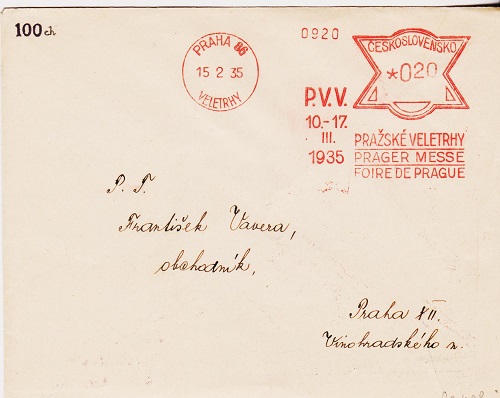 100 ch
PRAHA 86
15 2 35
VELETRHY
0920
ČESKOSLOVENSKO
*020
P.V.V.
10.-17.
III.
1935
PRAŽSKÉ VELETRHY
PRAGER MESSE
FOIRE DE PRAGUE
P. T.
František Vavera,
obchodník,
Praha XII.
Vinohradského n.